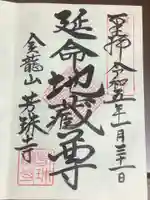 奉拝 令和五年一月三十一日
延命地蔵尊
金龍山 芳珠寺